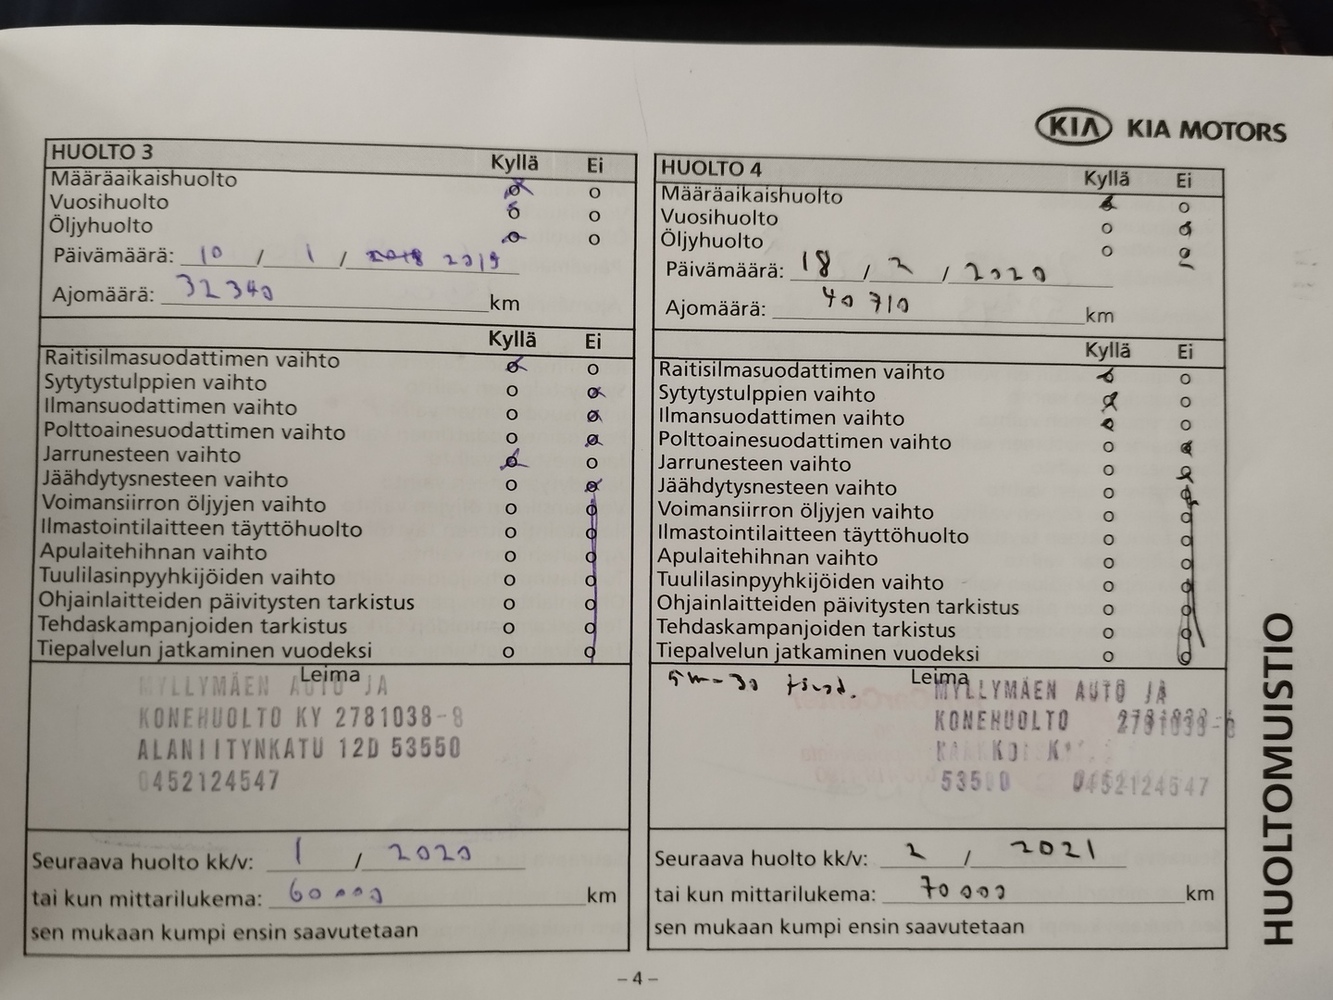 KIA KIA MOTORS
HUOLTO 3 Kyllä Ei
Määräaikaishuolto
Vuosihuolto
Öljyhuolto
Päivämäärä: 10 / 1 / 2018 2019
Ajomäärä: 32340 km
Kyllä Ei
Raitisilmasuodattimen vaihto
Sytytystulppien vaihto
Ilmansuodattimen vaihto
Polttoainesuodattimen vaihto
Jarrunesteen vaihto
Jäähdytysnesteen vaihto
Voimansiirron öljyjen vaihto
Ilmastointilaitteen täyttöhuolto
Apulaitehihnan vaihto
Tuulilasinpyyhkijöiden vaihto
Ohjainlaitteiden päivitysten tarkistus
Tehdaskampanjoiden tarkistus
Tiepalvelun jatkaminen vuodeksi
Leima
MYLLYMÄEN AUTO JA
KONEHUOLTO KY 2781038-8
ALANIITYNKATU 12D 53550
0452124547
Seuraava huolto kk/v: 1 / 2020
tai kun mittarilukema: 60000 km
sen mukaan kumpi ensin saavutetaan
HUOLTO 4 Kyllä Ei
Määräaikaishuolto
Vuosihuolto
Öljyhuolto
Päivämäärä: 18 / 2 / 2020
Ajomäärä: 40710 km
Kyllä Ei
Raitisilmasuodattimen vaihto
Sytytystulppien vaihto
Ilmansuodattimen vaihto
Polttoainesuodattimen vaihto
Jarrunesteen vaihto
Jäähdytysnesteen vaihto
Voimansiirron öljyjen vaihto
Ilmastointilaitteen täyttöhuolto
Apulaitehihnan vaihto
Tuulilasinpyyhkijöiden vaihto
Ohjainlaitteiden päivitysten tarkistus
Tehdaskampanjoiden tarkistus
Tiepalvelun jatkaminen vuodeksi
Leima
MYLLYMÄEN AUTO JA
KONEHUOLTO
0452124547
Seuraava huolto kk/v: 2 / 2021
tai kun mittarilukema: 70000 km
sen mukaan kumpi ensin saavutetaan
HUOLTOMUISTIO
– 4 –